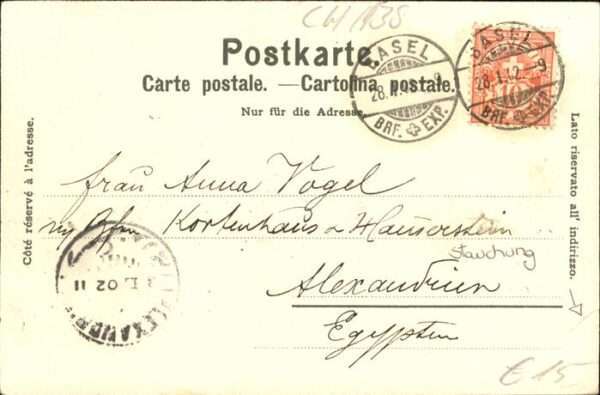 CH 138
Postkarte.
Carte postale. — Cartolina postale.
Nur für die Adresse.
BASEL
28.I.02.-9
BRF. EXP.
BASEL
28.I.02.-9
BRF. EXP.
10
Côté réservé à l'adresse.
Lato riservato all' indirizzo.
Frau Anna Vogel
Kortenhaus & Hauserstein
Stauchung
Alexandrien
Egypten
ALEXANDR
02 11
€ 15